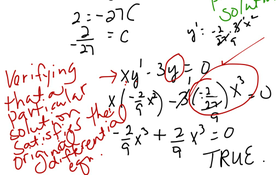 2 = -27C
-2/27 = C
Particular solution
y' = -2/27 · 3x²
9
Verifying that a particular solution satisfies the original differential eqn.
→ xy' - 3y = 0
x(-2/9 x²) - 3(-2/27)x³ = 0
-2/9 x³ + 2/9 x³ = 0
TRUE.